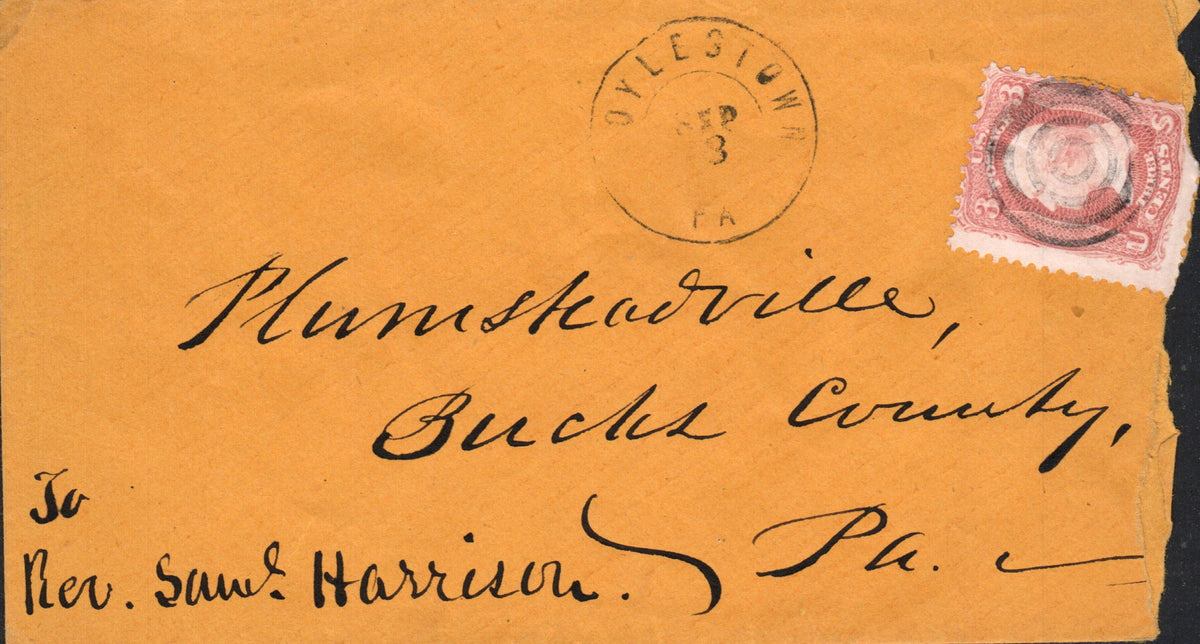 DOYLESTOWN
SEP
3
PA
3 U.S. 3
U CENTS S
THREE
Plumsteadville,
Bucks County,
Pa.
To
Rev. Saml. Harrison.